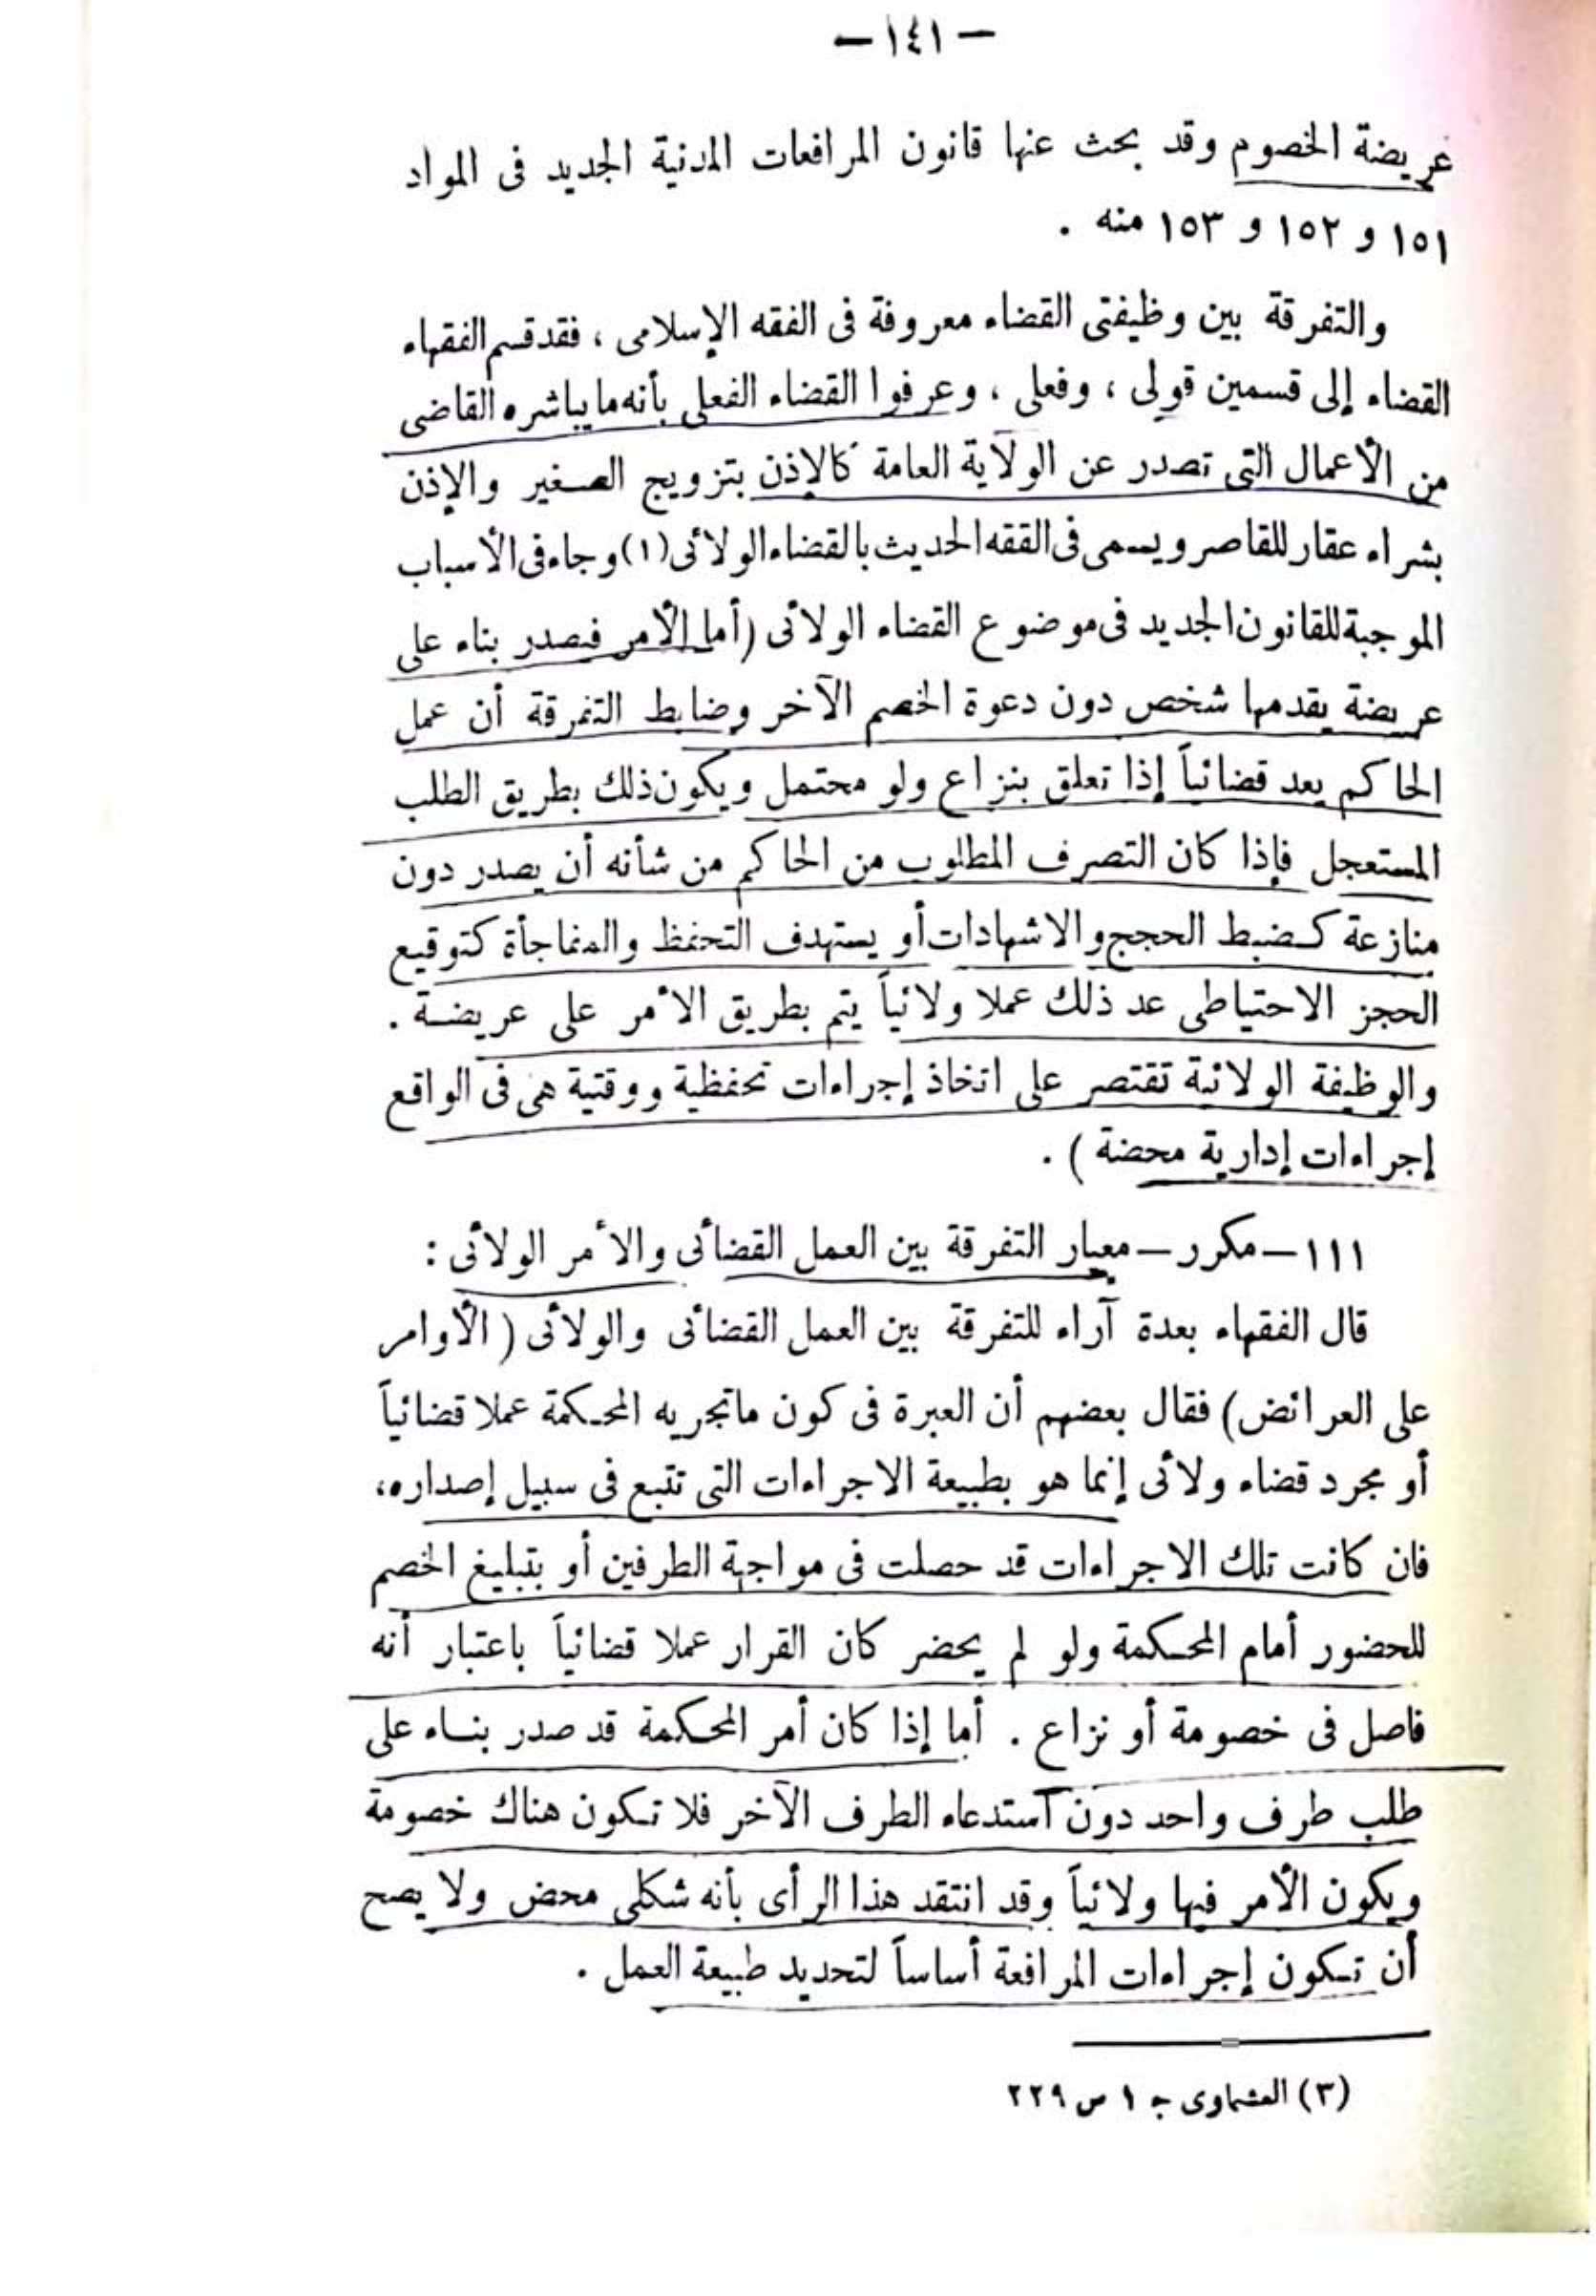 — ١٤١ —
عريضة الخصوم وقد بحث عنها قانون المرافعات المدنية الجديد فى المواد
١٥١ و ١٥٢ و ١٥٣ منه .
والتفرقة بين وظيفتى القضاء معروفة فى الفقه الإسلامى ، فقد قسم الفقهاء
القضاء إلى قسمين قولى ، وفعلى ، وعرفوا القضاء الفعلى بأنه ما يباشره القاضى
من الأعمال التى تصدر عن الولاية العامة كالإذن بتزويج الصغير والإذن
بشراء عقار للقاصر ويسمى فى الفقه الحديث بالقضاء الولائى (١) وجاء فى الأسباب
الموجبة للقانون الجديد فى موضوع القضاء الولائى (أما الأمر فيصدر بناء على
عريضة يقدمها شخص دون دعوة الخصم الآخر وضابط التفرقة أن عمل
الحاكم يعد قضائياً إذا تعلق بنزاع ولو محتمل ويكون ذلك بطريق الطلب
المستعجل فإذا كان التصرف المطلوب من الحاكم من شأنه أن يصدر دون
منازعة كضبط الحجج والاشهادات أو يستهدف التحفظ والمفاجأة كتوقيع
الحجز الاحتياطى عد ذلك عملا ولائياً يتم بطريق الأمر على عريضة .
والوظيفة الولائية تقتصر على اتخاذ إجراءات تحفظية ووقتية هى فى الواقع
إجراءات إدارية محضة ) .
١١١ – مكرر – معيار التفرقة بين العمل القضائى والأمر الولائى :
قال الفقهاء بعدة آراء للتفرقة بين العمل القضائى والولائى ( الأوامر
على العرائض) فقال بعضهم أن العبرة فى كون ماتجريه المحكمة عملا قضائياً
أو مجرد قضاء ولائى إنما هو بطبيعة الاجراءات التى تتبع فى سبيل إصداره،
فان كانت تلك الاجراءات قد حصلت فى مواجهة الطرفين أو بتبليغ الخصم
للحضور أمام المحكمة ولو لم يحضر كان القرار عملا قضائياً باعتبار أنه
فاصل فى خصومة أو نزاع . أما إذا كان أمر المحكمة قد صدر بناء على
طلب طرف واحد دون استدعاء الطرف الآخر فلا تكون هناك خصومة
ويكون الأمر فيها ولائياً وقد انتقد هذا الرأى بأنه شكلى محض ولا يصح
أن تكون إجراءات المرافعة أساساً لتحديد طبيعة العمل .
(٣) العشماوى ج ١ ص ٢٢٩